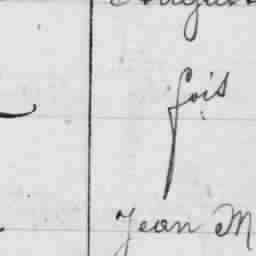 fois
Jean M